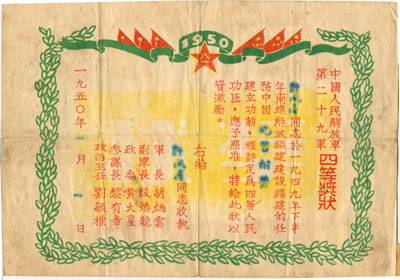 1950
八一
中國人民解放軍
第二十九軍 四等獎狀
同志於一九四九年下半
年南進解放福建建設福建的任
務中因 吃苦耐勞
建立功勳，經評定爲四等人民
功臣，應予照准，特給此狀以
資激勵
右給
同志收執
軍長 胡炳雲
副軍長 段煥競
政委 黃火星
參謀長 黎有章
政治主任 劉毓標
一九五〇年 月 日